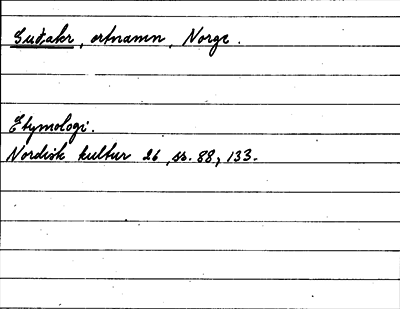 Guđakr, ortnamn, Norge.
Etymologi.
Nordisk kultur 26, ss. 88, 133.